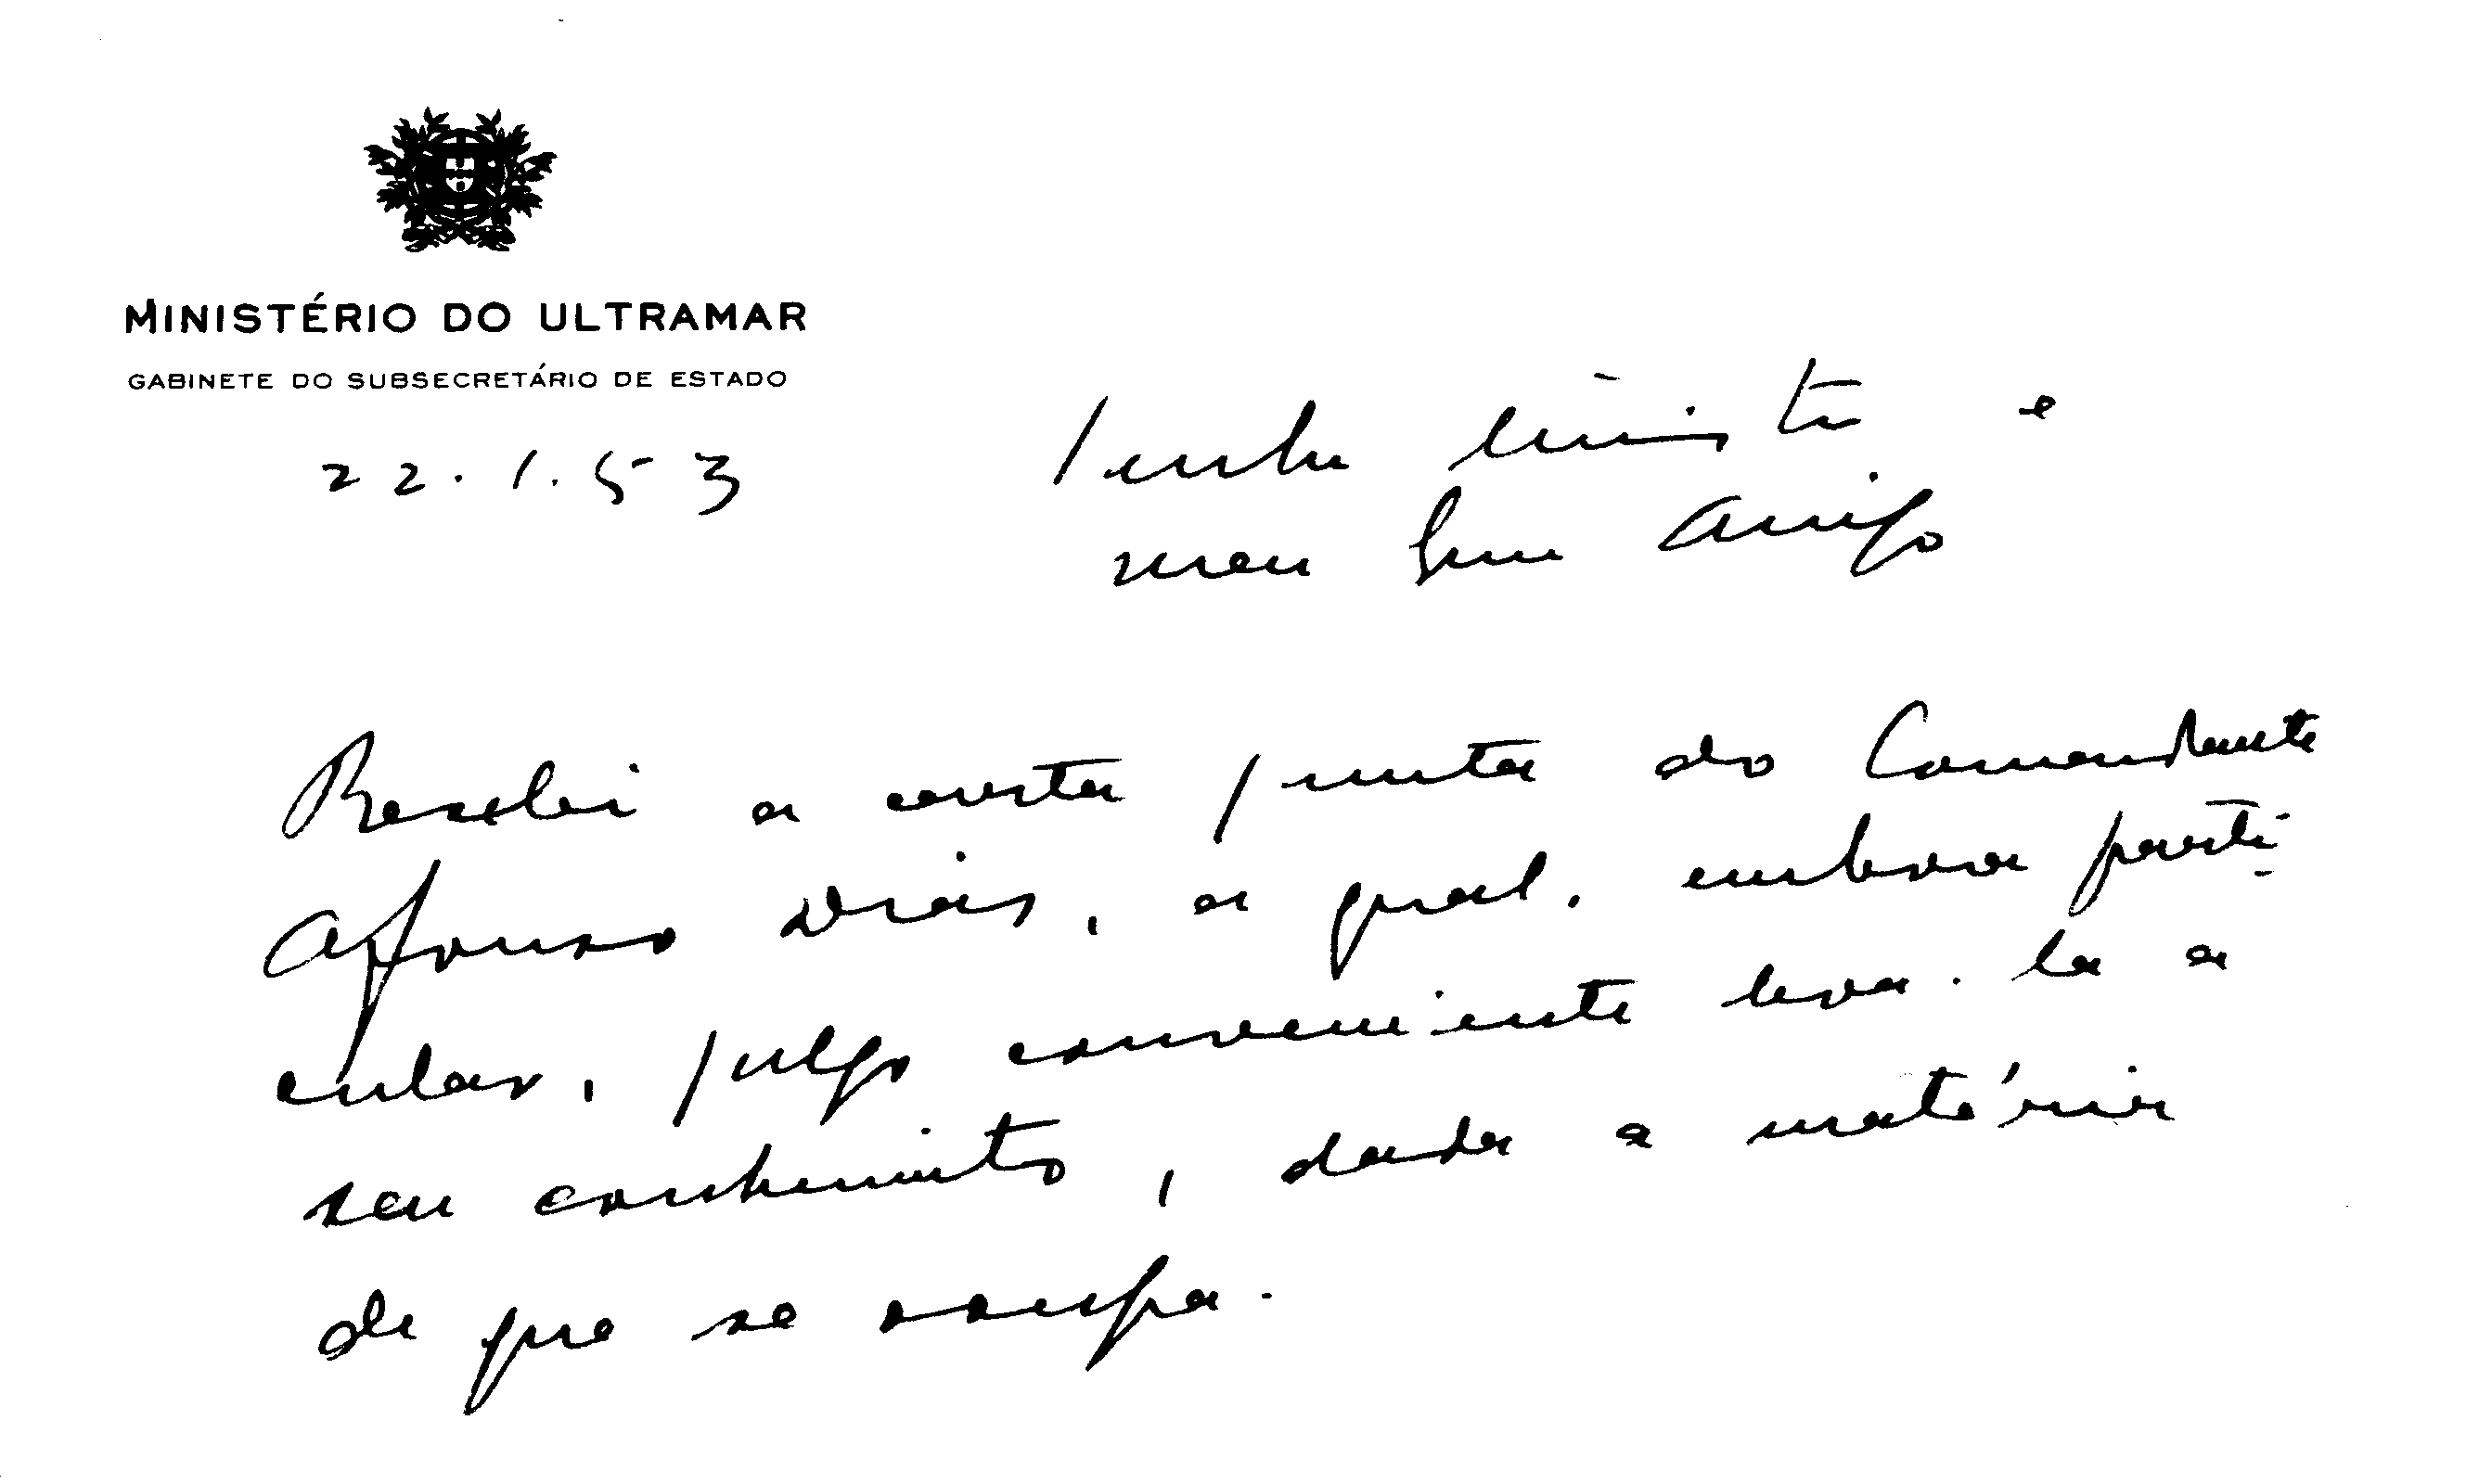 MINISTÉRIO DO ULTRAMAR
GABINETE DO SUBSECRETÁRIO DE ESTADO
22.1.53
Senhor Ministro e
meu bom amigo
Recebi a carta junta do Comandante
Afonso Dias, a qual, embora parti-
cular, julgo conveniente levá-la a
seu conhecimento, dada a matéria
de que se ocupa.